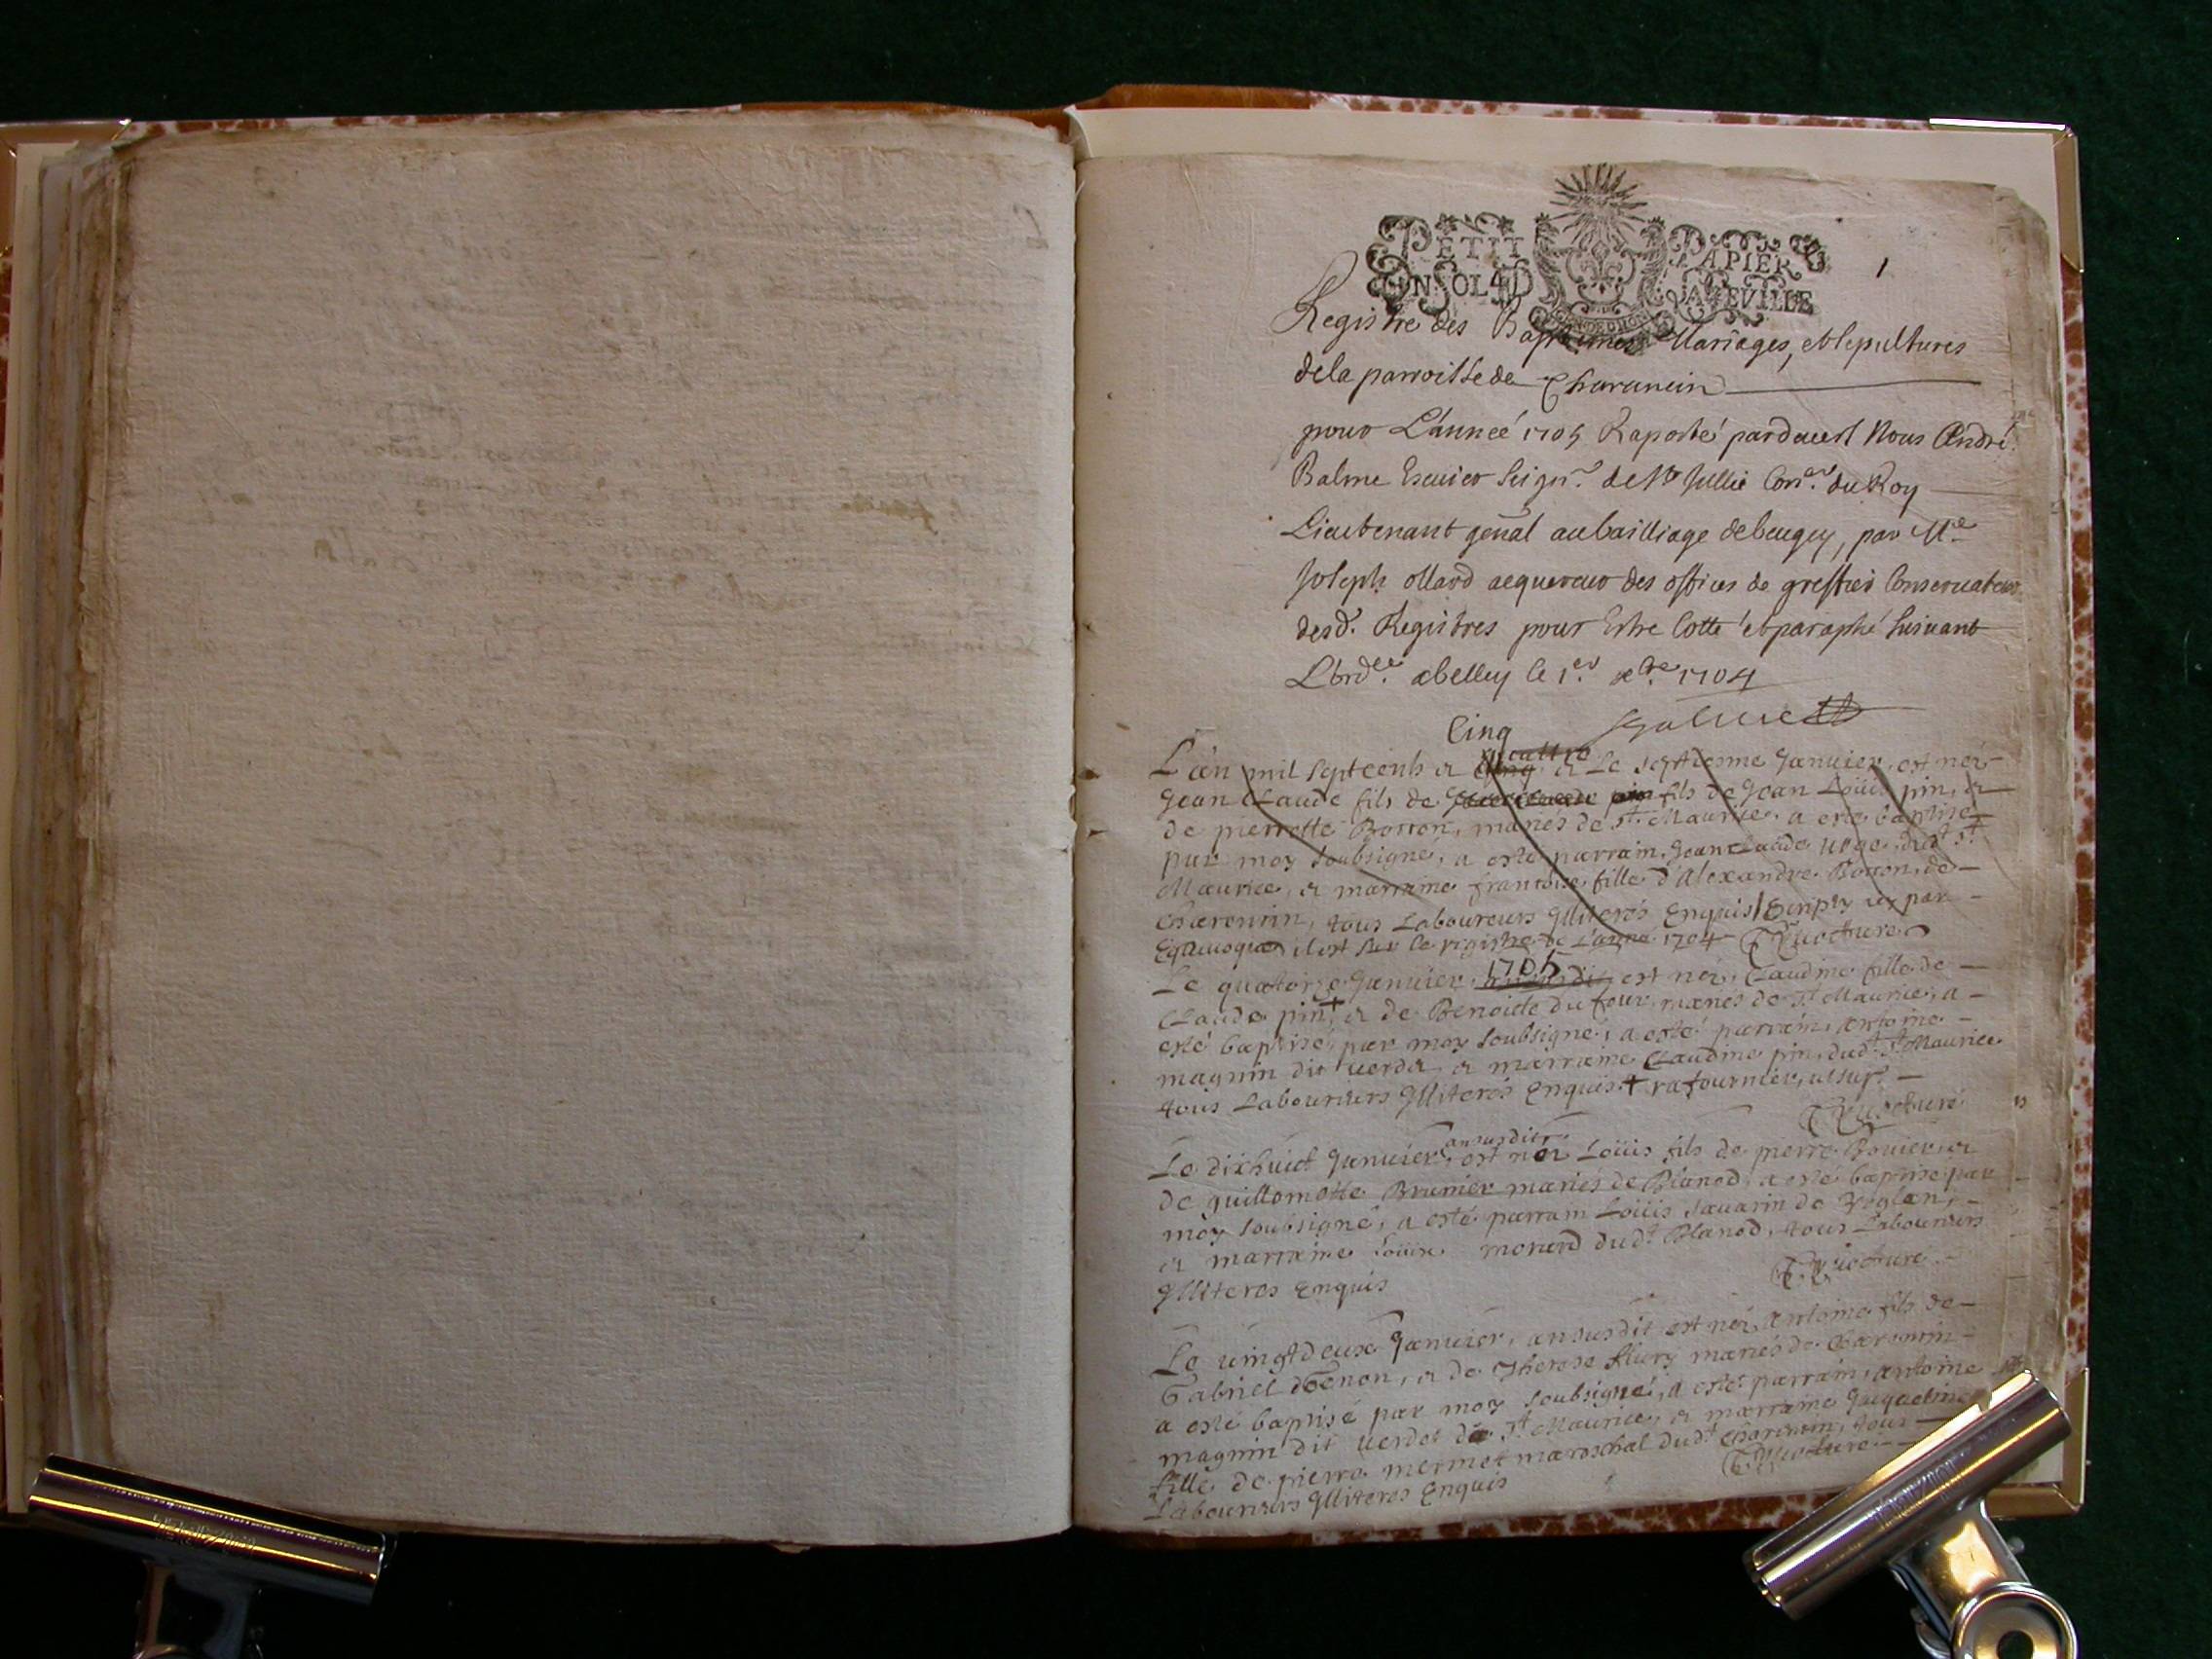 PETIT PAPIER
UN SOL 4D LA FEVILLE
1
Registre des Baptemes Mariages, et sepultures
de la parroisse de Charancin
pour L'année 1705 Raporté pardevant Nous André
Balme Escuier seignr de Ste Jullie Conser du Roy
Lieutenant genal au bailliage de beugey, par Me
Joseph ollard acquereur des offices de greffier Conservateur
desd. Registres pour Estre Cotté et paraphé suivant
L'ordce a belley le 1er xbre 1704
Balme
Cinq
quattre
L'an mil sept cents et cinq et Le septienme Janvier, est neé
Jean Claude fils de fils de Jean Loüis pin, et
de pierrette Borron, mariés de st Maurice. a esté baptisé
par moy soubsigné, a esté parrain, Jean Claude dudt st
Maurice, et marraine francoise fille d'Alexandre Borron, de
Charencin, tous Laboureurs Illiterés Enquis par
Equivoque, il est sur le registre de L'année 1704
1705
Le quatorze Janvier, est neé, Claudine fille de
Claude pin + et de Benoitte du four, mariés de st Maurice, a
esté baptisé, par moy soubsigné, a esté parrain, antoine
magnin dit verdet, et marraine Claudine pin, dudt st Maurice
tous Laboureurs Illiterés Enquis +
an susdit
Le dixhuict Janvier, est neé Loüis fils de pierre et
de guillemette Brunier mariés de Blanod, a esté baptisé par
moy soubsigné, a esté parrain Loüis savarin de
et marraine Loüise monerd dudt Blanod, tous Laboureurs
Illiteres Enquis
Le vingtdeux Janvier, an susdit est neé, antoine fils de
Gabriel, et de Therese mariés de Charencin
a esté baptisé par moy soubsigné, a esté parrain, antoine
magnin dit verdet de st Maurice, et marraine Jaqueline
fille de pierre mermet mareschal dudt Charencin, tous
Laboureurs Illiteres Enquis